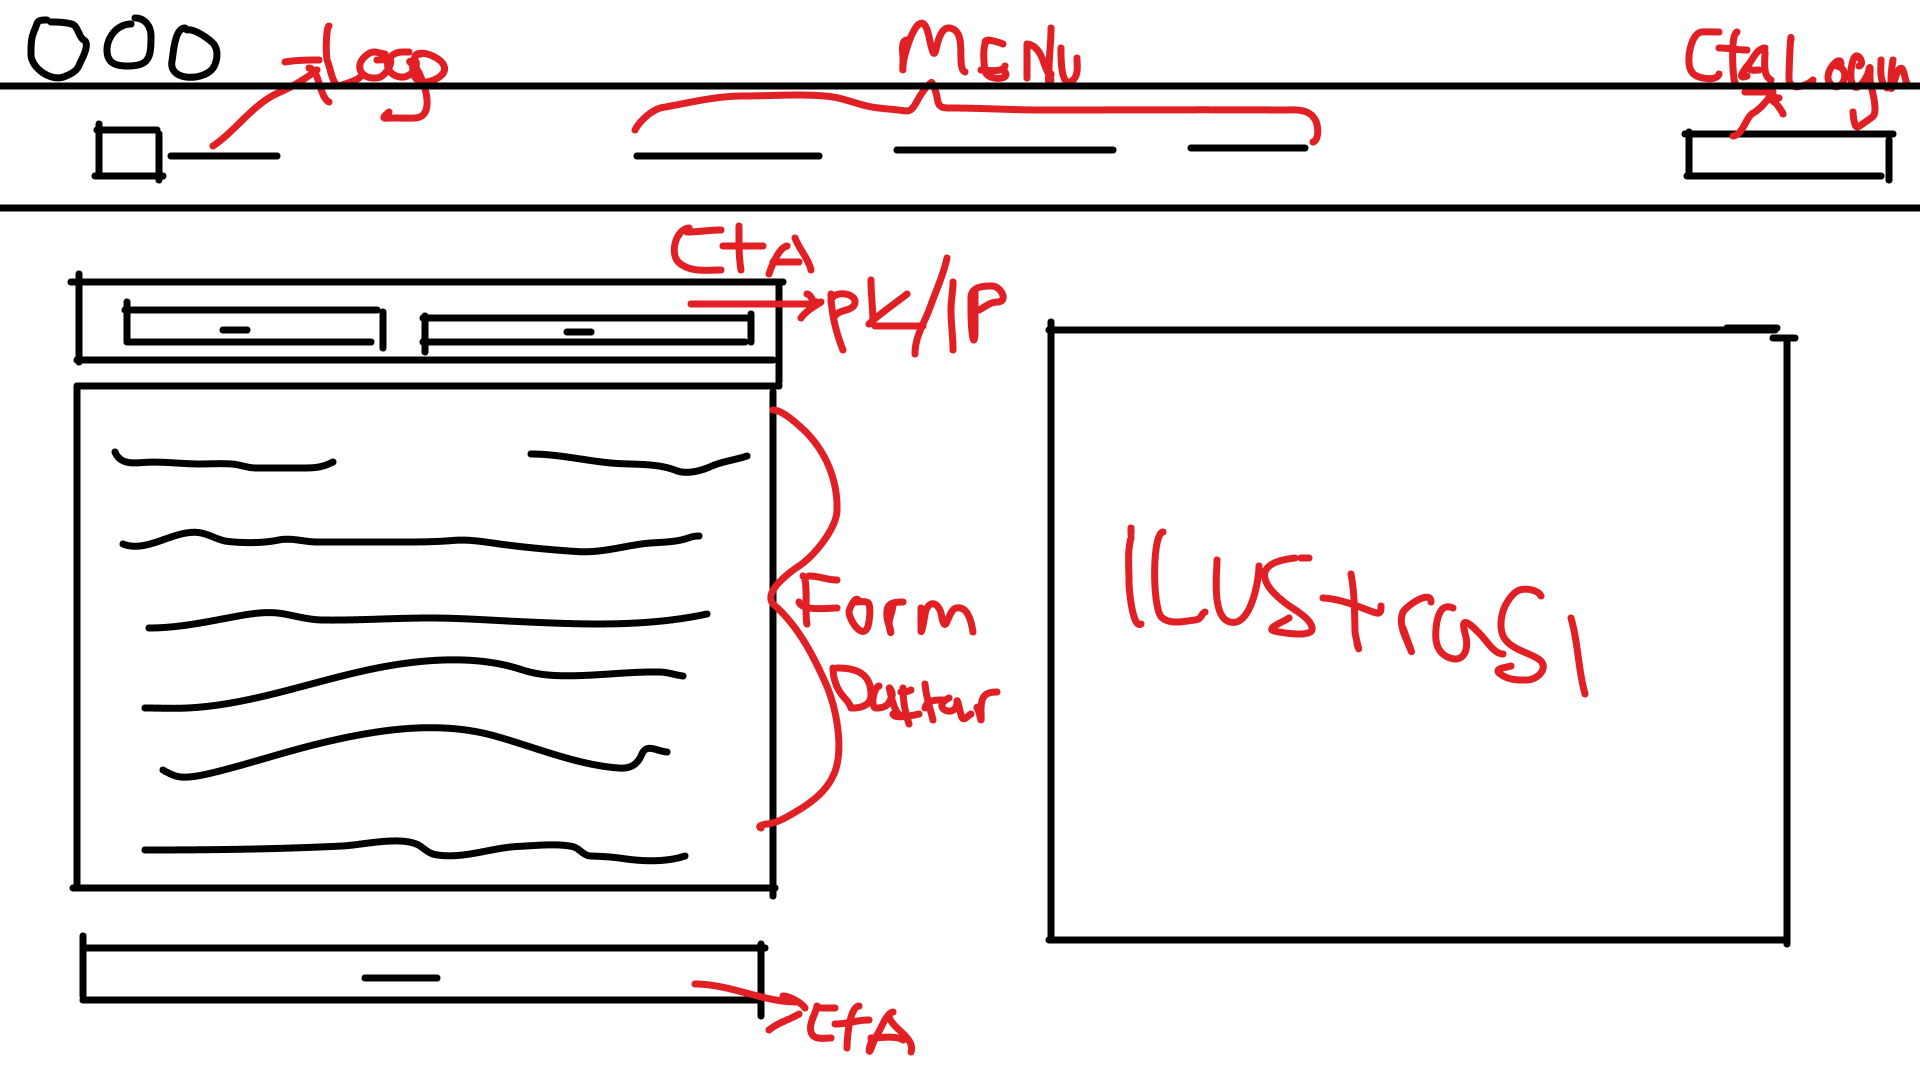 Logo
MENU
CtA Login
CtA
PK/IP
Form
Daftar
ILUStraSI
CtA